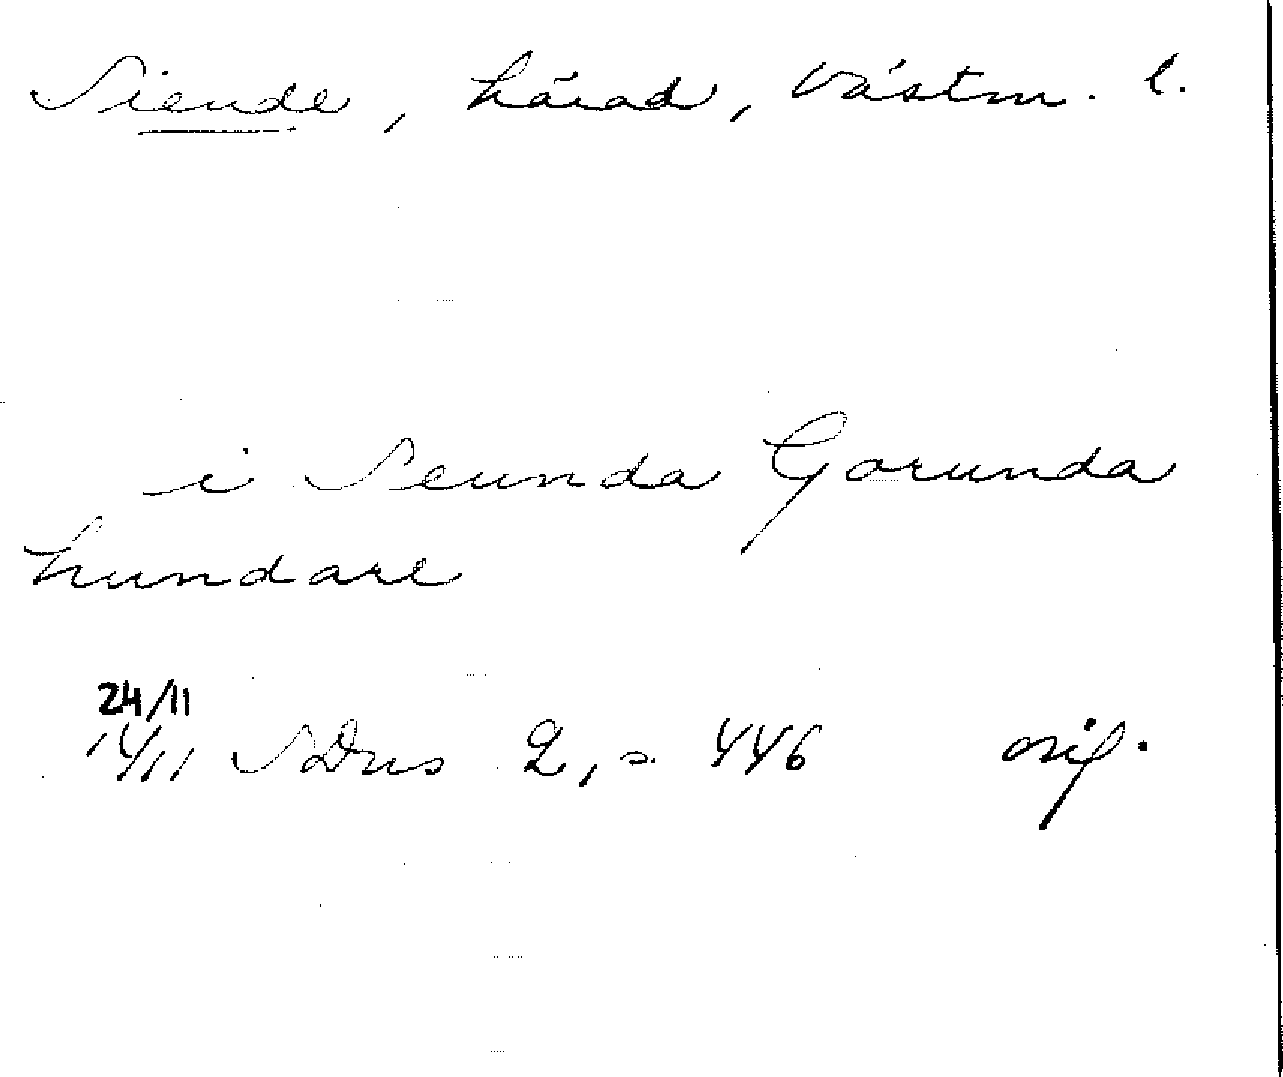 Siende, härad, Västm. l.
i Seunda Gorunda
hundare
24/11
14/11 SDns 2, s. 446 orig.